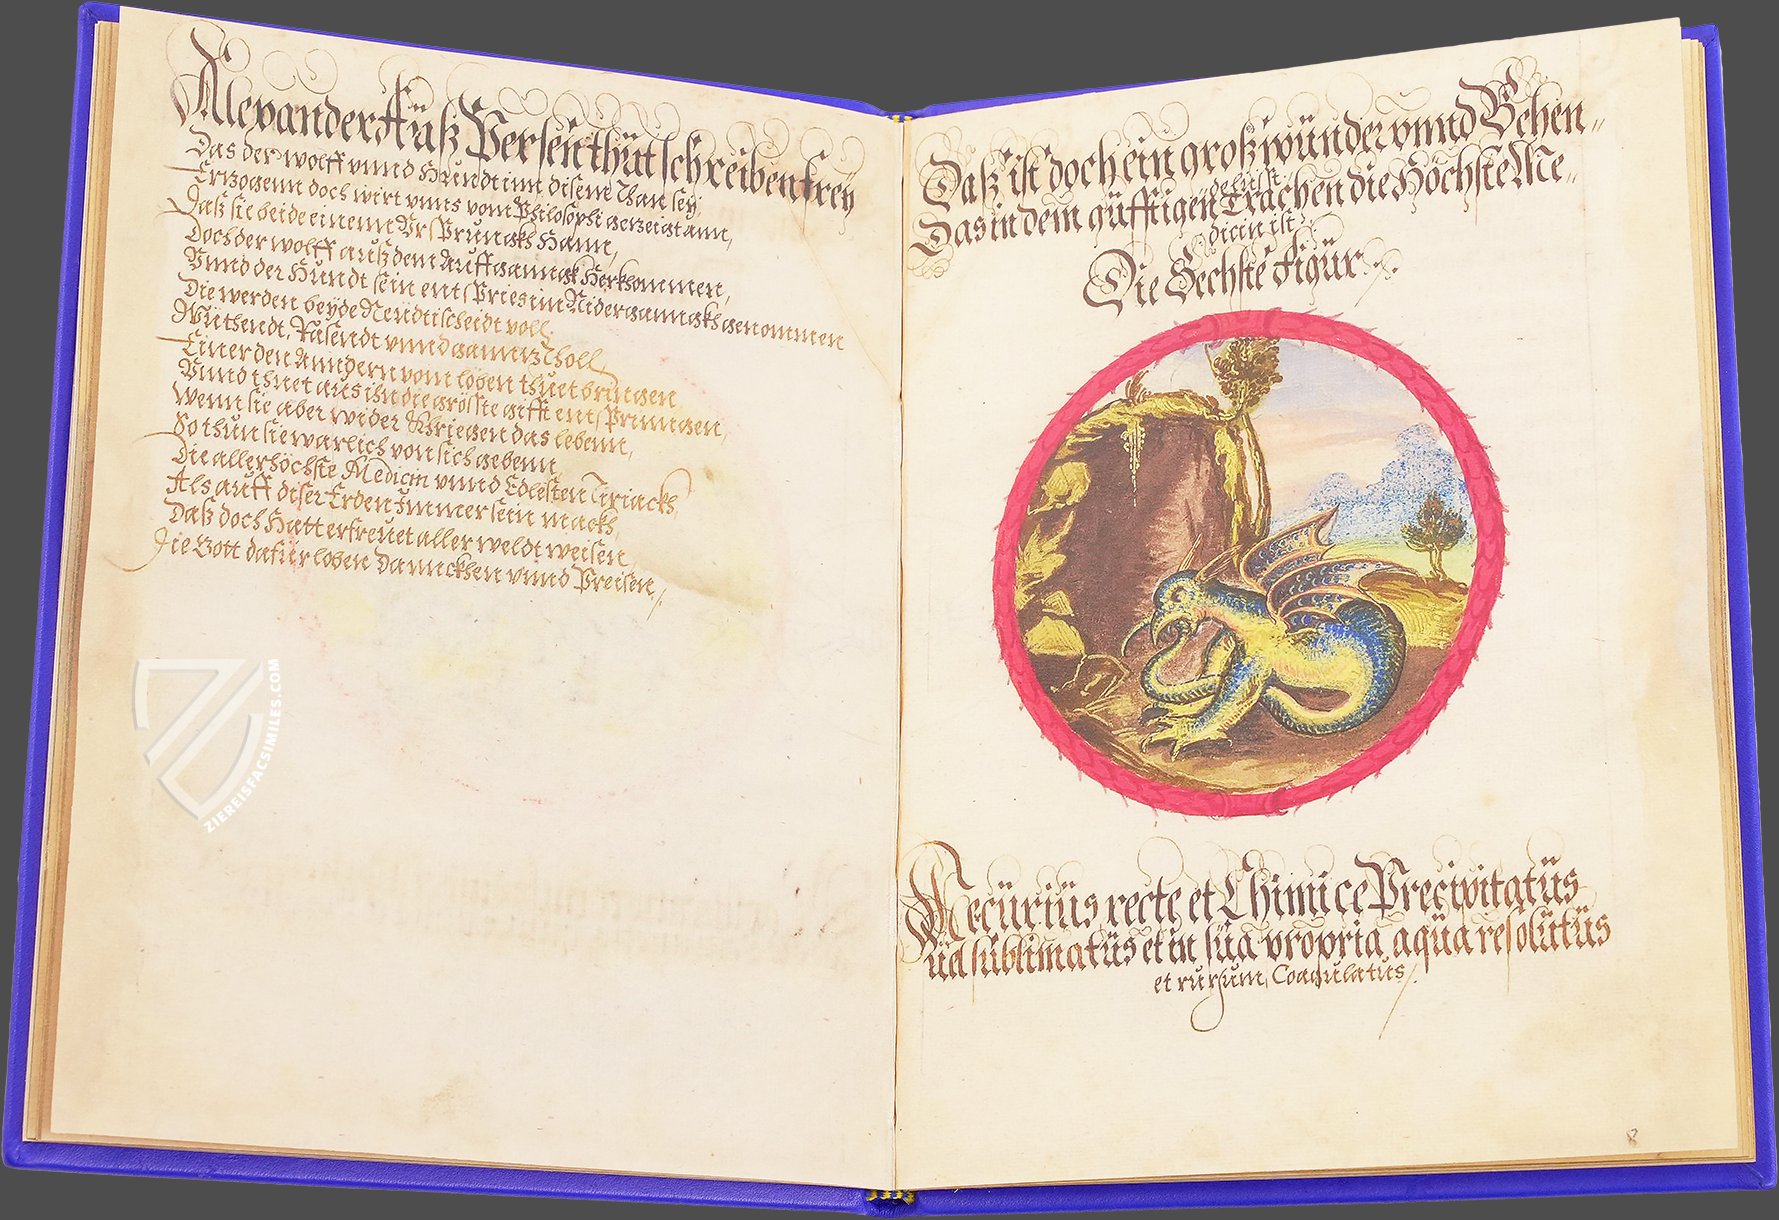 Alexander Auß Persen thüt schreiben freÿ
Das der wolff vnnd Hundt inn disem Than seÿ,
Erzogenn doch wirt vnns vom Philosophi gezeigt ann,
Daß sie beide einenn Vrsprungkh Hann,
Doch der wolff auß dem Auffganngkh Herkhommen,
Vnnd der Hundt sein entspries im Nidergangkh genommen
Die werden beÿde Neüdt ischeidt voll
Wüthendt, Rasendt vnnd ganntz tholl,
Einer den Anndern vom leben thuet bringen
Vnnd thuet aus ihn die grösste gifft entspringen,
Wenn sie aber wider Khriegen das lebenn,
So thun sie warlich von sich gebenn,
Die allerhöchste Medicin vnnd Edlesten Tiriackh,
Als auff diser Erden Immer sein mackh,
Daß doch Hatt erfreuet aller weldt weisen
Die Gott dafür loben Danckhen vnnd Preisen,/.
Daß ist doch ein groß wünder vnnd Behen-
delüst.
Das in dem güfftigen Trachen die Höchste Me-
dicin ist
Die Sechste Figür
Mecüriüs recte et Chimice Precipitatüs
üel süblimatüs et in süa propria aqüa resolütüs
et rursum, Coagulatus/.
8
ZIEREISFACSIMILES.COM